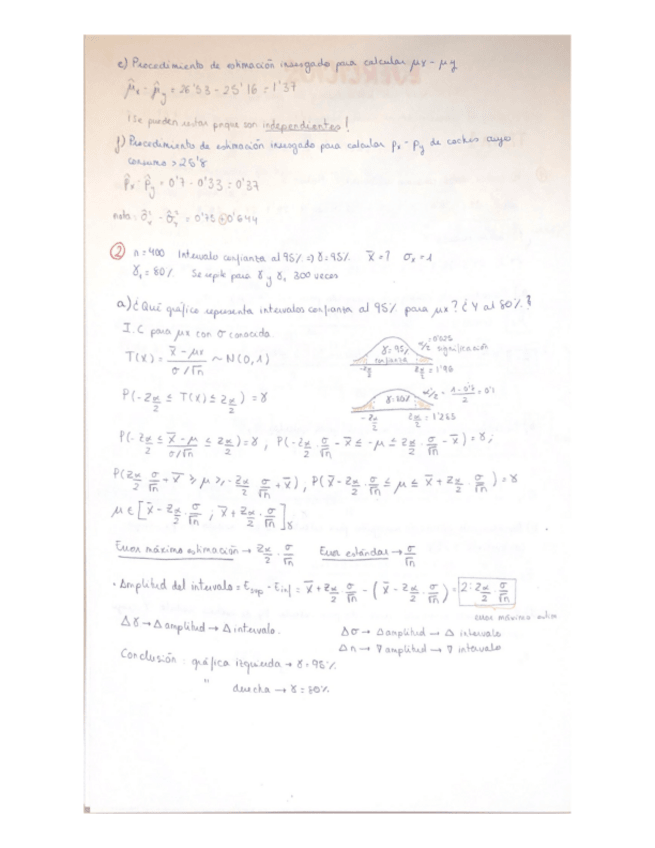 e) Procedimiento de estimación insesgado para calcular μx - μy
μ̂x - μ̂y = 26'53 - 25'16 = 1'37
¡Se pueden restar porque son independientes!
f) Procedimiento de estimación insesgado para calcular px - py de coches cuyo
consumo > 25'8
p̂x - p̂y = 0'7 - 0'33 = 0'37
nota:
② n = 400 Intervalo confianza al 95% ⇒ γ = 95% x̄ = ? σx = 1
γ₁ = 80% Se repite para γ y γ₁ 300 veces
a) ¿Qué gráfico representa intervalos confianza al 95% para μx? ¿Y al 80%?
I.C para μx con σ conocida.
T(x) = (x̄ - μx)/(σ/√n) ~ N(0,1)
γ = 95% confianza
α/2 = 0'025 significación
-zα/2 zα/2 = 1'96
P(-zα/2 ≤ T(x) ≤ zα/2) = γ
γ = 80%
-zα/2
P(-zα/2 ≤ (x̄ - μ)/(σ/√n) ≤ zα/2) = γ, P(-zα/2 · σ/√n - x̄ ≤ -μ ≤ zα/2 · σ/√n - x̄) = γ;
P(zα/2 σ/√n + x̄ ≥ μ ≥ -zα/2 σ/√n + x̄), P(x̄ - zα/2 · σ/√n ≤ μ ≤ x̄ + zα/2 · σ/√n) = γ
μ ∈ [x̄ - zα/2 · σ/√n ; x̄ + zα/2 · σ/√n]γ
Error máximo estimación → zα/2 · σ/√n Error estándar → σ/√n
· Amplitud del intervalo = Esup - Einf = x̄ + zα/2 σ/√n - (x̄ - zα/2 · σ/√n) = 2 · zα/2 σ/√n
error máximo estim
Δγ → Δ amplitud → Δ intervalo.
Δσ → Δ amplitud → Δ intervalo
Δn → ∇ amplitud → ∇ intervalo
Conclusión: gráfica izquierda → γ = 95%
" derecha → γ = 80%